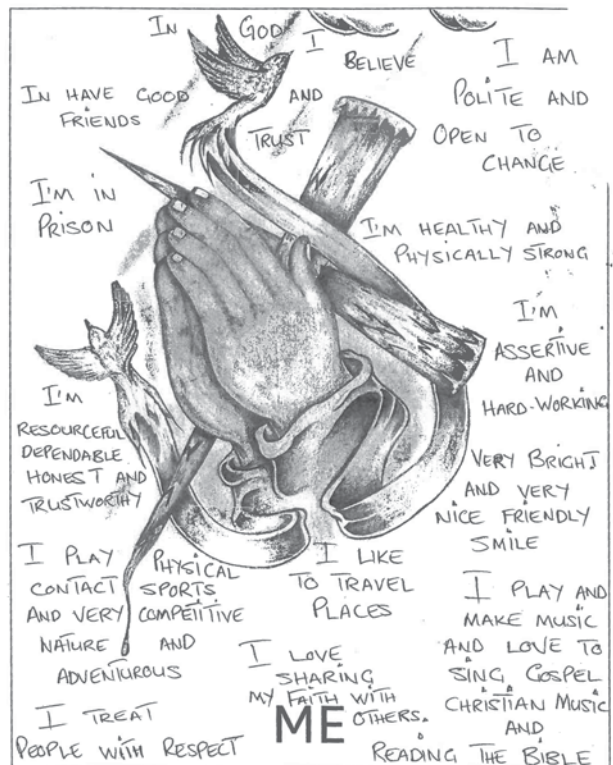 IN GOD I
BELIEVE
AND
TRUST
IN HAVE GOOD
FRIENDS
I AM
POLITE AND
OPEN TO
CHANGE
I'M IN
PRISON
I'M HEALTHY AND
PHYSICALLY STRONG
I'M
ASSERTIVE
AND
HARD-WORKING
I'M
RESOURCEFUL
DEPENDABLE
HONEST AND
TRUSTWORTHY
VERY BRIGHT
AND VERY
NICE FRIENDLY
SMILE
I PLAY PHYSICAL
CONTACT SPORTS
AND VERY COMPETITIVE
NATURE AND
ADVENTUROUS
I LIKE
TO TRAVEL
PLACES
I PLAY AND
MAKE MUSIC
AND LOVE TO
SING GOSPEL
CHRISTIAN MUSIC
AND
READING THE BIBLE
I LOVE
SHARING
MY FAITH WITH
OTHERS.
ME
I TREAT
PEOPLE WITH RESPECT